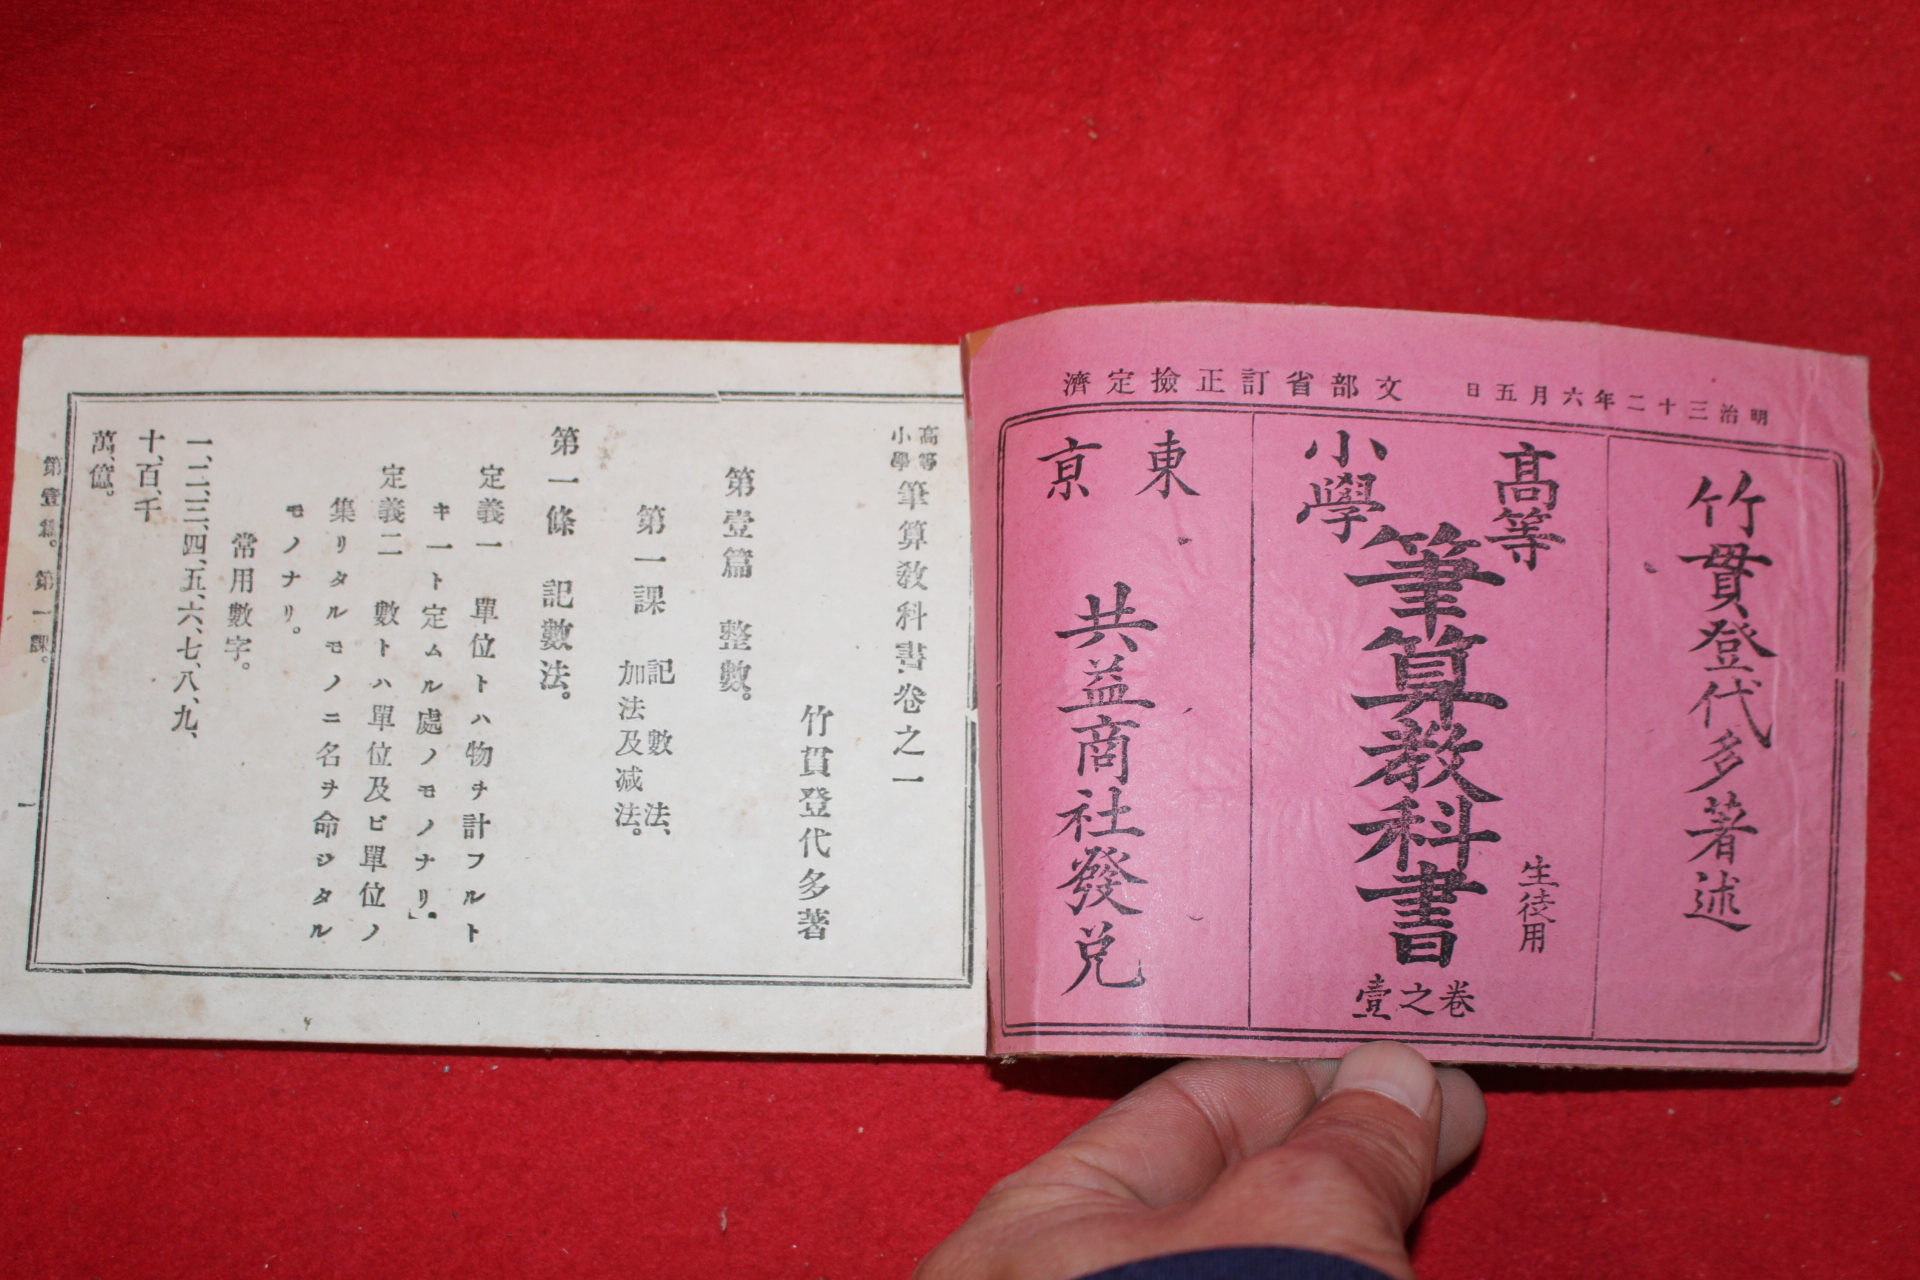 明治三十二年六月五日 文部省訂正檢定濟
竹貫登代多著述
高等
小學
筆算教科書
生徒用
卷之壹
東京
共益商社發兌
高等
小學
筆算敎科書卷之一
竹貫登代多著
第壹篇 整數。
第一課 記數法、
加法及減法。
第一條 記數法。
定義一 單位トハ物ヲ計フルト
キ一ト定ムル處ノモノナリ。
定義二 數トハ單位及ビ單位ノ
集リタルモノニ名ヲ命ジタル
モノナリ。
常用數字。
一、二、三、四、五、六、七、八、九、
十、百、千
萬、億。
第壹篇。 第一課。
一